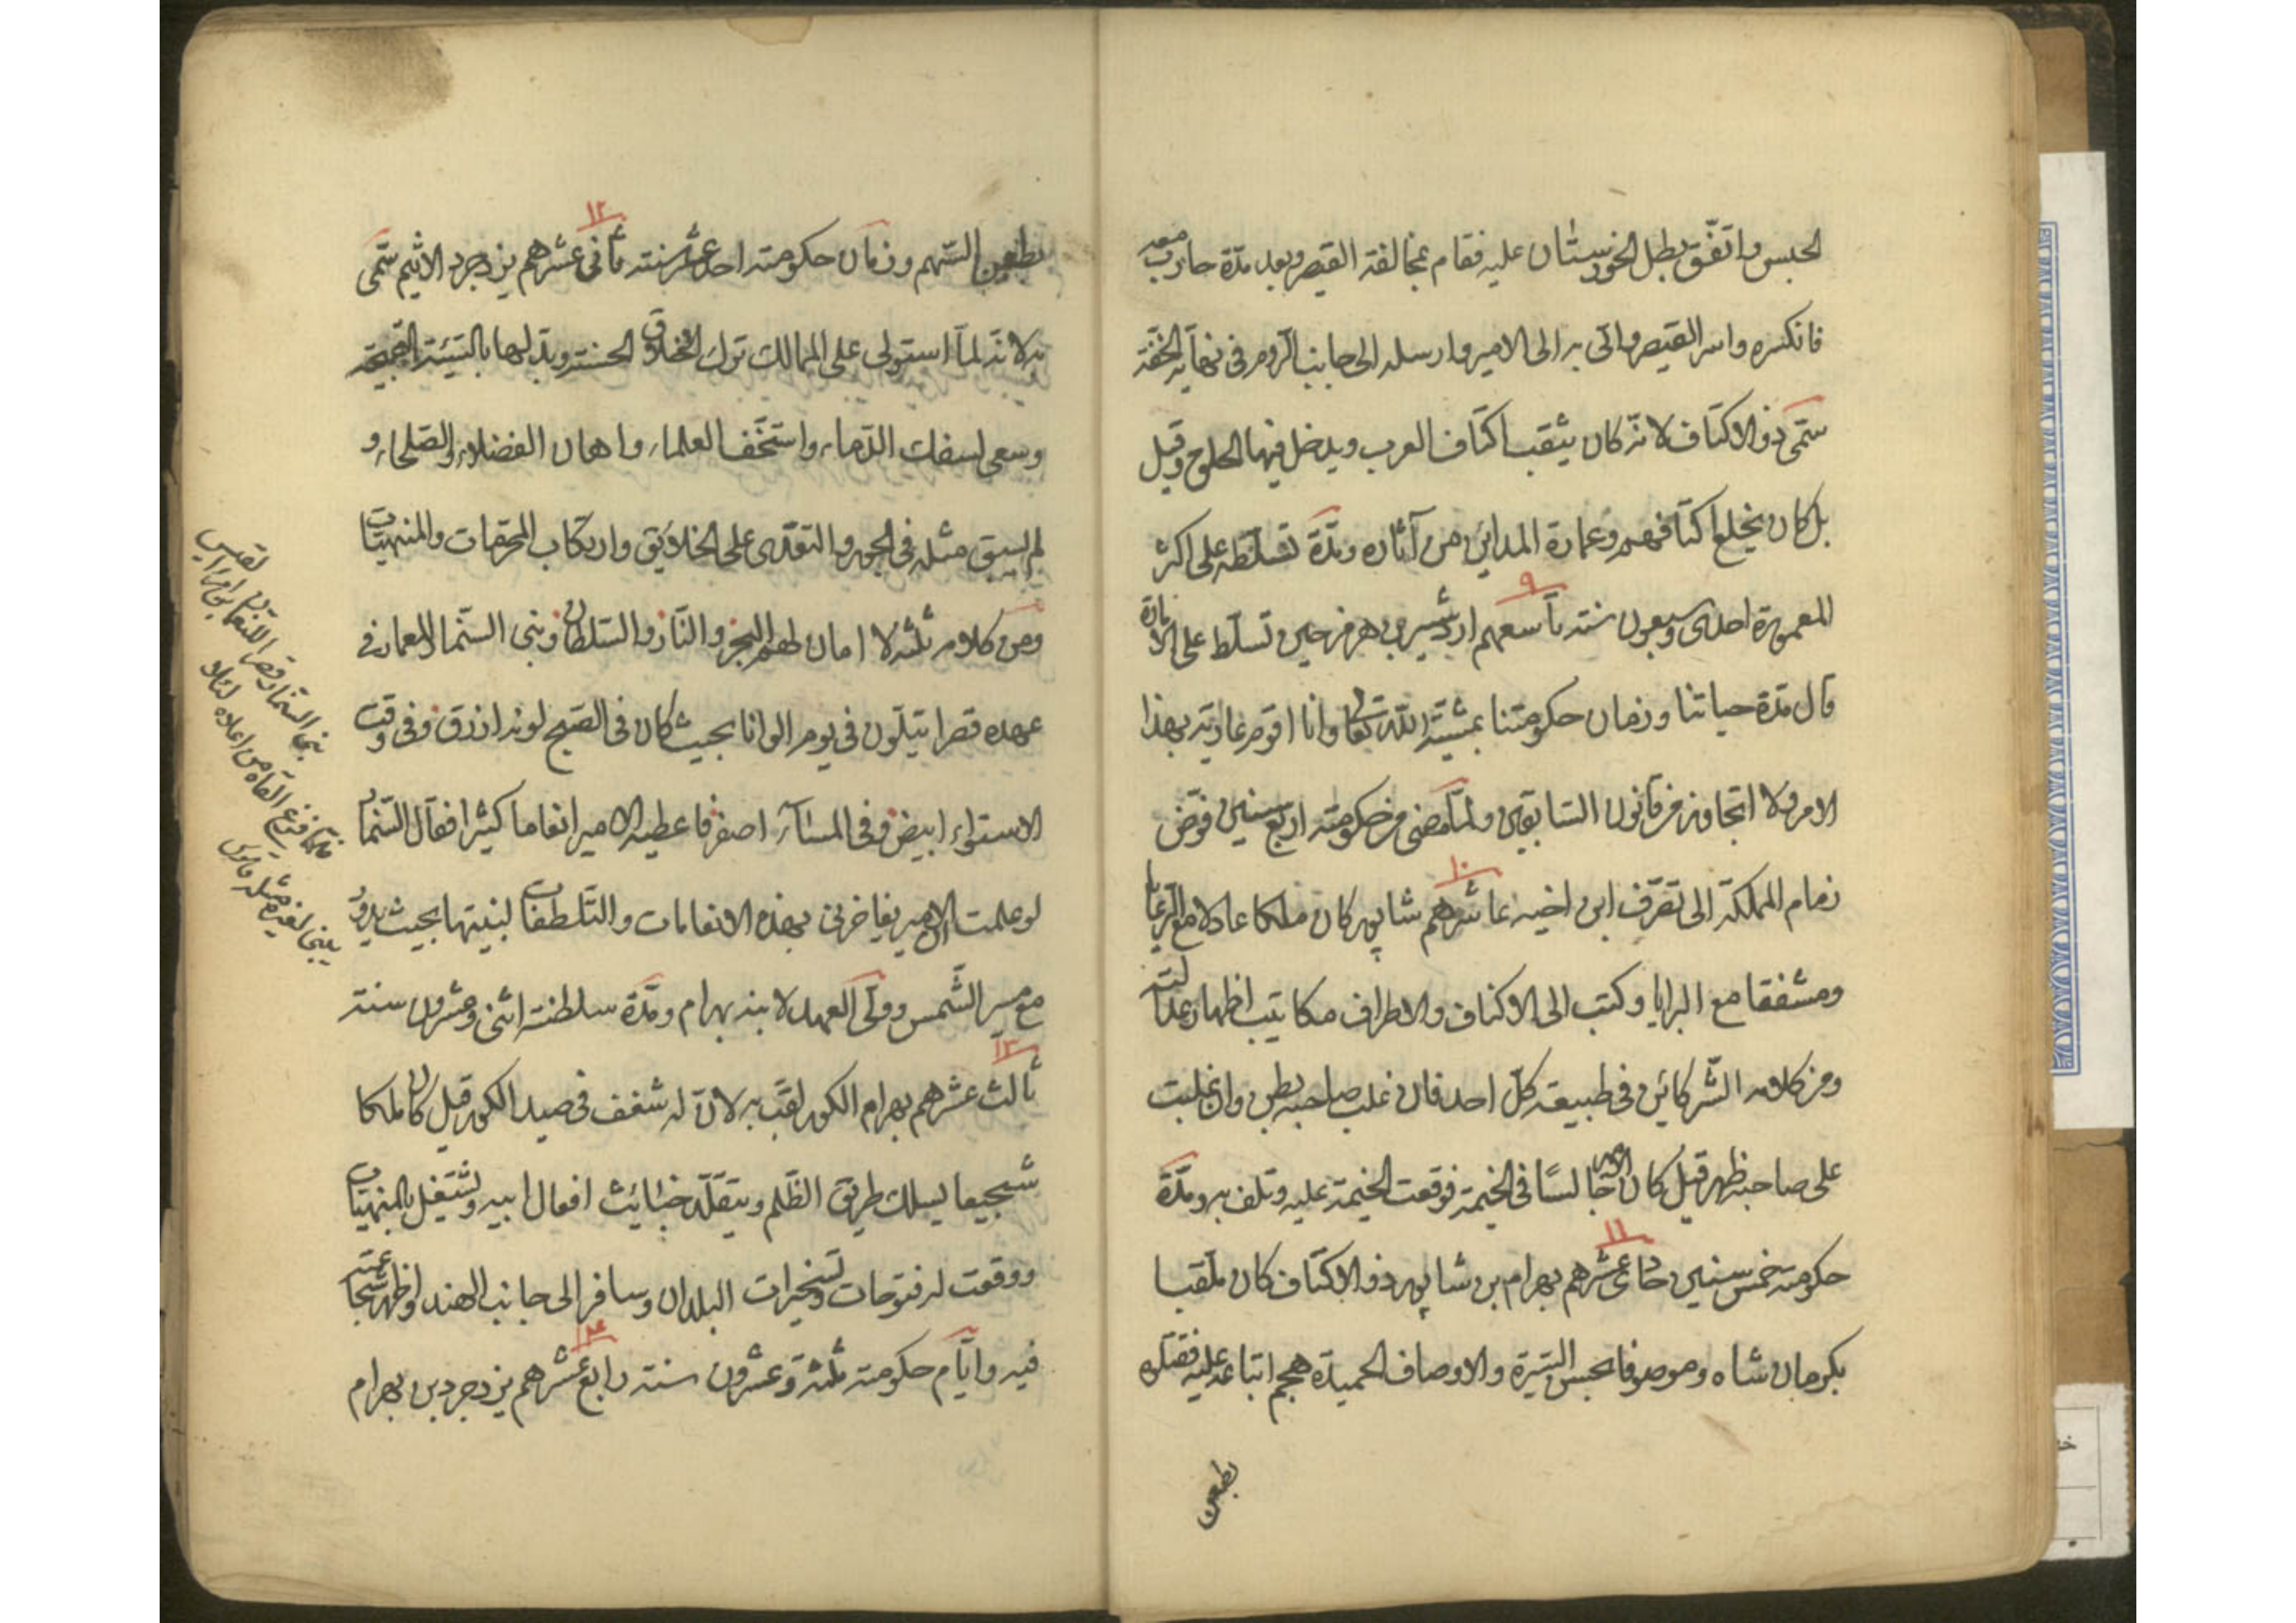 الحبس واتفّق بطل الخوزستان عليه فقام بمخالفة القيصر وبعد مدّة حارب معه
فانكسره واسر القيصر واتى به الى الامير وارسله الى جانب الروم فى نهاية الخفّة
سمّى ذو الاكتاف لانّه كان يثقب اكتاف العرب ويدخل فيها الحلوج وقيل
بل كان يخلع اكتافهم وعمارة المداين من آثاره ومدّة تسلّطه على اكثر
٩
المعمورة احدى وسبعون سنة تاسعهم اردشير بن هرمز حين تسلّط على الامارة
قال مدّة حياتنا وزمان حكومتنا بمشيّة اللّه تعالى وانا اقوم عاريّة بهذا
الامر ولا اتجاوز من قانون السّابقين ولمّا مضى من حكومته اربع سنين فوّض
١٠
زمام المملكة الى تصّرف ابن اخيه عاشرهم شاپور كان ملكا عادلا مع الرّعايا
ومشفقا مع البرايا وكتب الى الاكناف والاطراف مكاتيب اظهار عدالته
ومن كلامه الشّر كائن فى طبيعة كلّ احد فان غلب صاحبه بطن وان غلبت
على صاحبه ظهر قيل كان الامير جالسًا فى الخيمة فوقعت الخيمة عليه وتلف به ومدّة
١١
حكومته خمس سنين حادى عشرهم بهرام بن شاپور ذو الاكتاف كان ملقبا
بكرمان شاه وموصوفا بحسن السّيرة والاوصاف الحميدة هجم اتباعه عليه فقتلوه
بطعن
١٢
بطعن السّهم وزمان حكومته احد عشر سنة ثانى عشرهم يزدجرد الاثيم سمّى
به لانّه لمّا استولى على الممالك ترك الاخلاق الحسنة وبدّلها بالسّيّئة القبيحة
وسعى لسفك الدّماء واستخّف العلماء واهان الفضلاء والصّلحاء و
لم يسبق مثله فى الجور والتعّدى على الخلايق وارتكاب المحرّمات والمنهيّات
ومن كلامه ثلثة لا امان لهم البحر والنّار والسّلطان وبنى السّنمار المعمار فى
عهده قصرا يتلّون فى يوم الوانا بحيث كان فى الصّبح لونه ازرق وفى وقت
الاستواء ابيض وفى المسآء اصفر فاعطيه الامير انعاما كثيرا فقال السّنمار
لو علمت الامير يفاخرنى بهذه الانعامات والتّلطفات لبنيتها بحيث يدور
مع سير الشّمس وولّى العهد لابنه بهرام ومدّة سلطنته اثنى وعشرون سنة
١٣
ثالث عشرهم بهرام الكور لقّب به لانّ له شغف فى صيد الكور قيل كان ملكا
شجيعا يسلك طريق الظّلم ويتقلّد خبائث افعال ابيه ويشتغل بالمنهيّات
ووقعت له فتوحات وتسخيرات البلدان وسافر الى جانب الهند واظهر شجاعته
١٤
فيه وايّام حكومته ثلثة وعشرون سنة رابع عشرهم يزدجرد بن بهرام
بنى السّنمار قصر النّعمان بن امرء القيس
فلمّا فرغ القاه من اعلاه لئلا
يبنى لغيره مثله قاموس